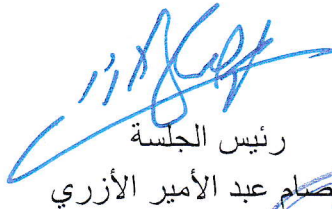 رئيس الجلسة
صام عبد الأمير الأزري